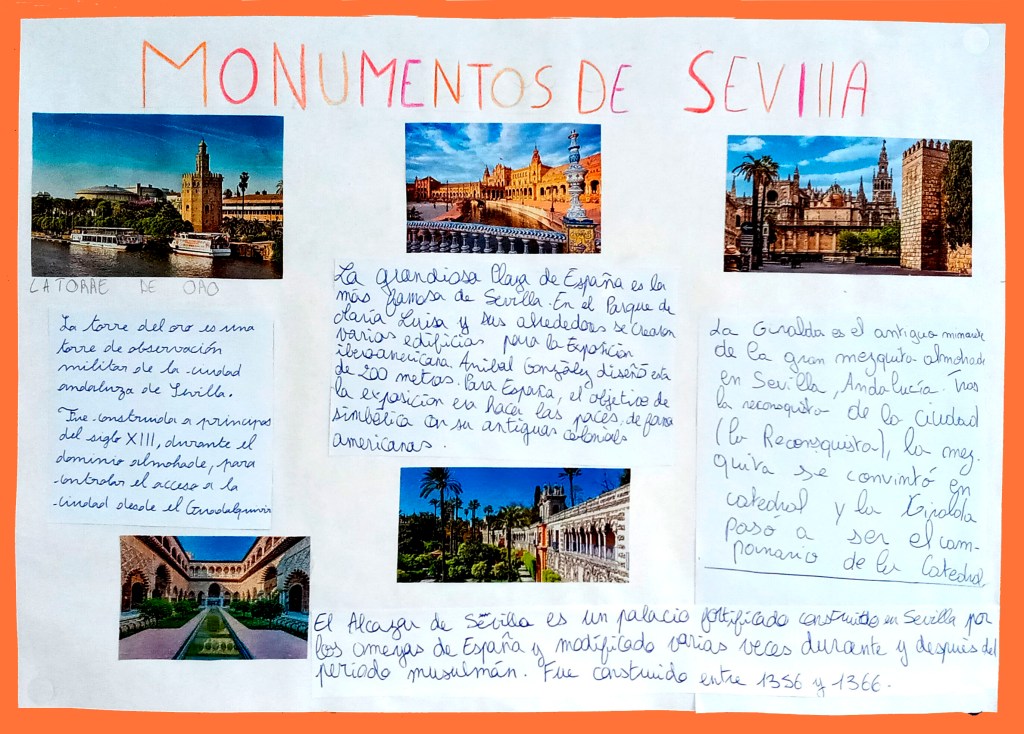 MONUMENTOS DE SEVIllA
LA TORRE DE ORO
La torre del oro es una
torre de observación
militar de la ciudad
andaluza de Sevilla.
Fue construida a principos
del siglo XIII, durante el
dominio almohade, para
controlar el acceso a la
ciudad desde el Guadalquivir
La grandiosa Plaza de España es la
más famosa de Sevilla. En el Parque de
Maria Luisa y sus alrededores se crearon
varios edificios para la Exposicion
iberoamericana. Anibal González diseñó esta
de 200 metros. Para España, el objetivo de
la exposición era hacer las paces, de forma
simbólica con su antiguas colonials
americanas.
La Giralda es el antiguo minarete
de la gran mezquita almohade
en Sevilla, Andalucía. Tras
la reconquista de la ciudad
(la Reconsquista), la mez-
quita se convintó en
catedral y la Giralda
paso a ser el cam-
panario de la Catedral
El Alcazar de Sevilla es un palacio fortificado construido en Sevilla por
los omeyas de España y modificado varias veces durante y despuès del
período musulmán. Fue construido entre 1356 y 1366.